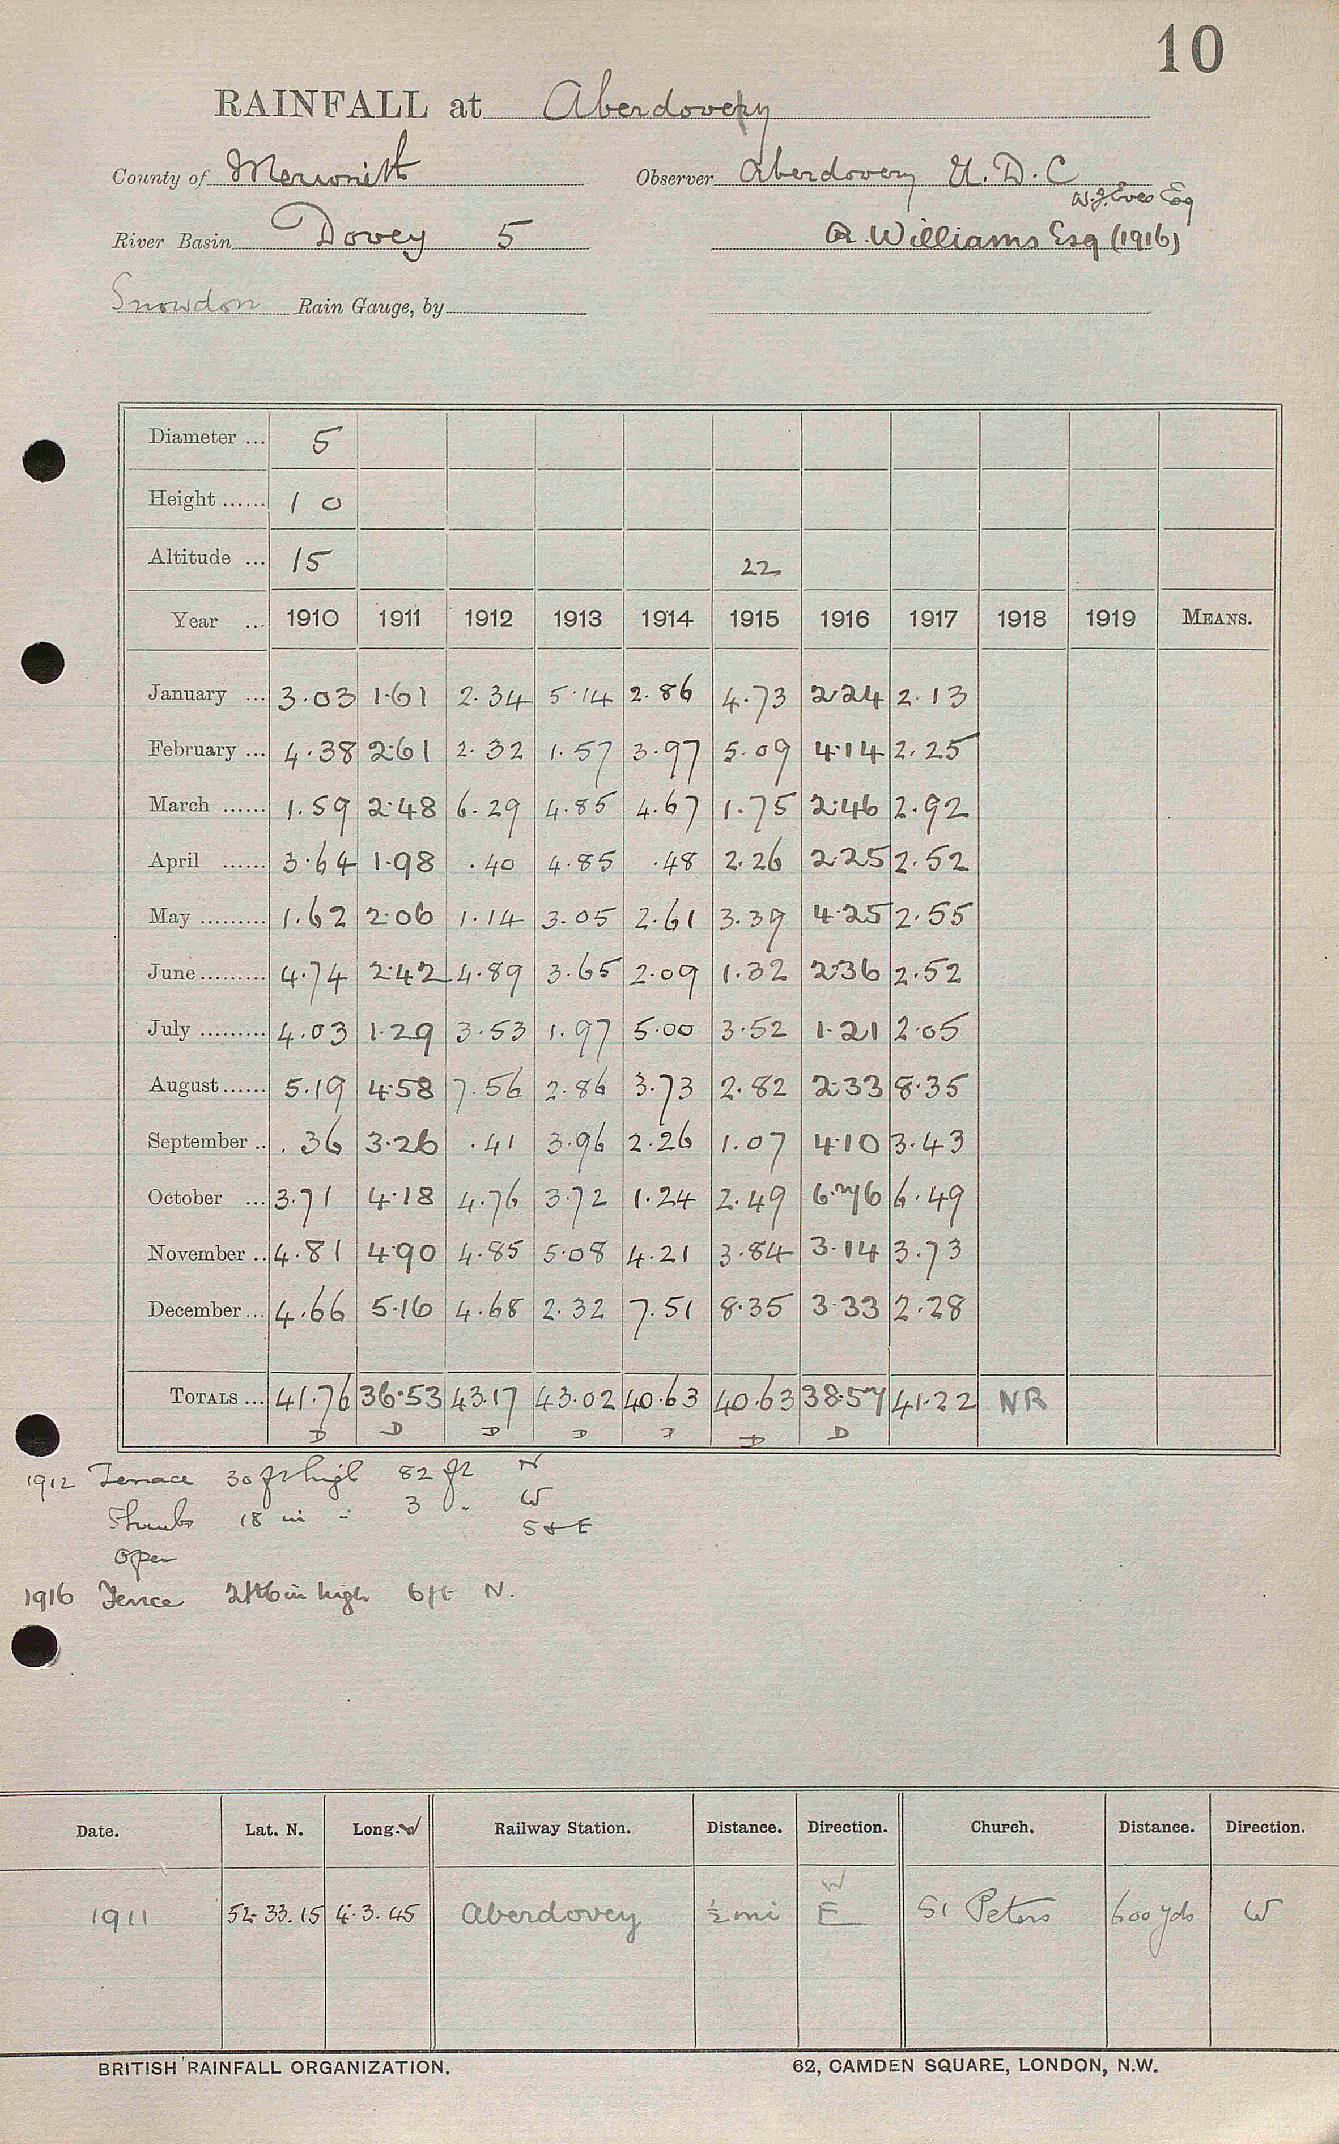 10
RAINFALL at Aberdovey
County of Merioneth Observer Aberdovey U.D.C
W.J. Eves Esq
River Basin Dovey 5 R. Williams Esq (1916)
Snowdon Rain Gauge, by
Diameter ... 5
Height ...... 10
Altitude ... 15 22
Year ... 1910 1911 1912 1913 1914 1915 1916 1917 1918 1919 MEANS.
January ... 3.03 1.61 2.34 5.14 2.86 4.73 2.24 2.13
February ... 4.38 2.61 2.32 1.57 3.97 5.09 4.14 2.25
March ...... 1.59 2.48 6.29 4.85 4.67 1.75 2.46 2.92
April ...... 3.64 1.98 .40 4.85 .48 2.26 2.25 2.52
May ......... 1.62 2.06 1.14 3.05 2.61 3.39 4.25 2.55
June ......... 4.74 2.42 4.89 3.65 2.09 1.32 2.36 2.52
July ......... 4.03 1.29 3.53 1.97 5.00 3.52 1.21 2.05
August ...... 5.19 4.58 7.56 2.86 3.73 2.82 2.33 8.35
September .. .36 3.26 .41 3.96 2.26 1.07 4.10 3.43
October ... 3.71 4.18 4.76 3.72 1.24 2.49 6.76 6.49
November .. 4.81 4.90 4.85 5.08 4.21 3.84 3.14 3.73
December ... 4.66 5.16 4.68 2.32 7.51 8.35 3.33 2.28
TOTALS ... 41.76 36.53 43.17 43.02 40.63 40.63 38.57 41.22 NR
D D D D D D D
1912 Terrace 30 ft high 82 ft N
Shrubs 18 in " 3 " W
Open S & E
1916 Fence 2ft6in high 6ft N.
Date. Lat. N. Long. W Railway Station. Distance. Direction. Church. Distance. Direction.
1911 52.33.15 4.3.45 Aberdovey ½ mi W E St Peters 600 yds W
BRITISH RAINFALL ORGANIZATION. 62, CAMDEN SQUARE, LONDON, N.W.